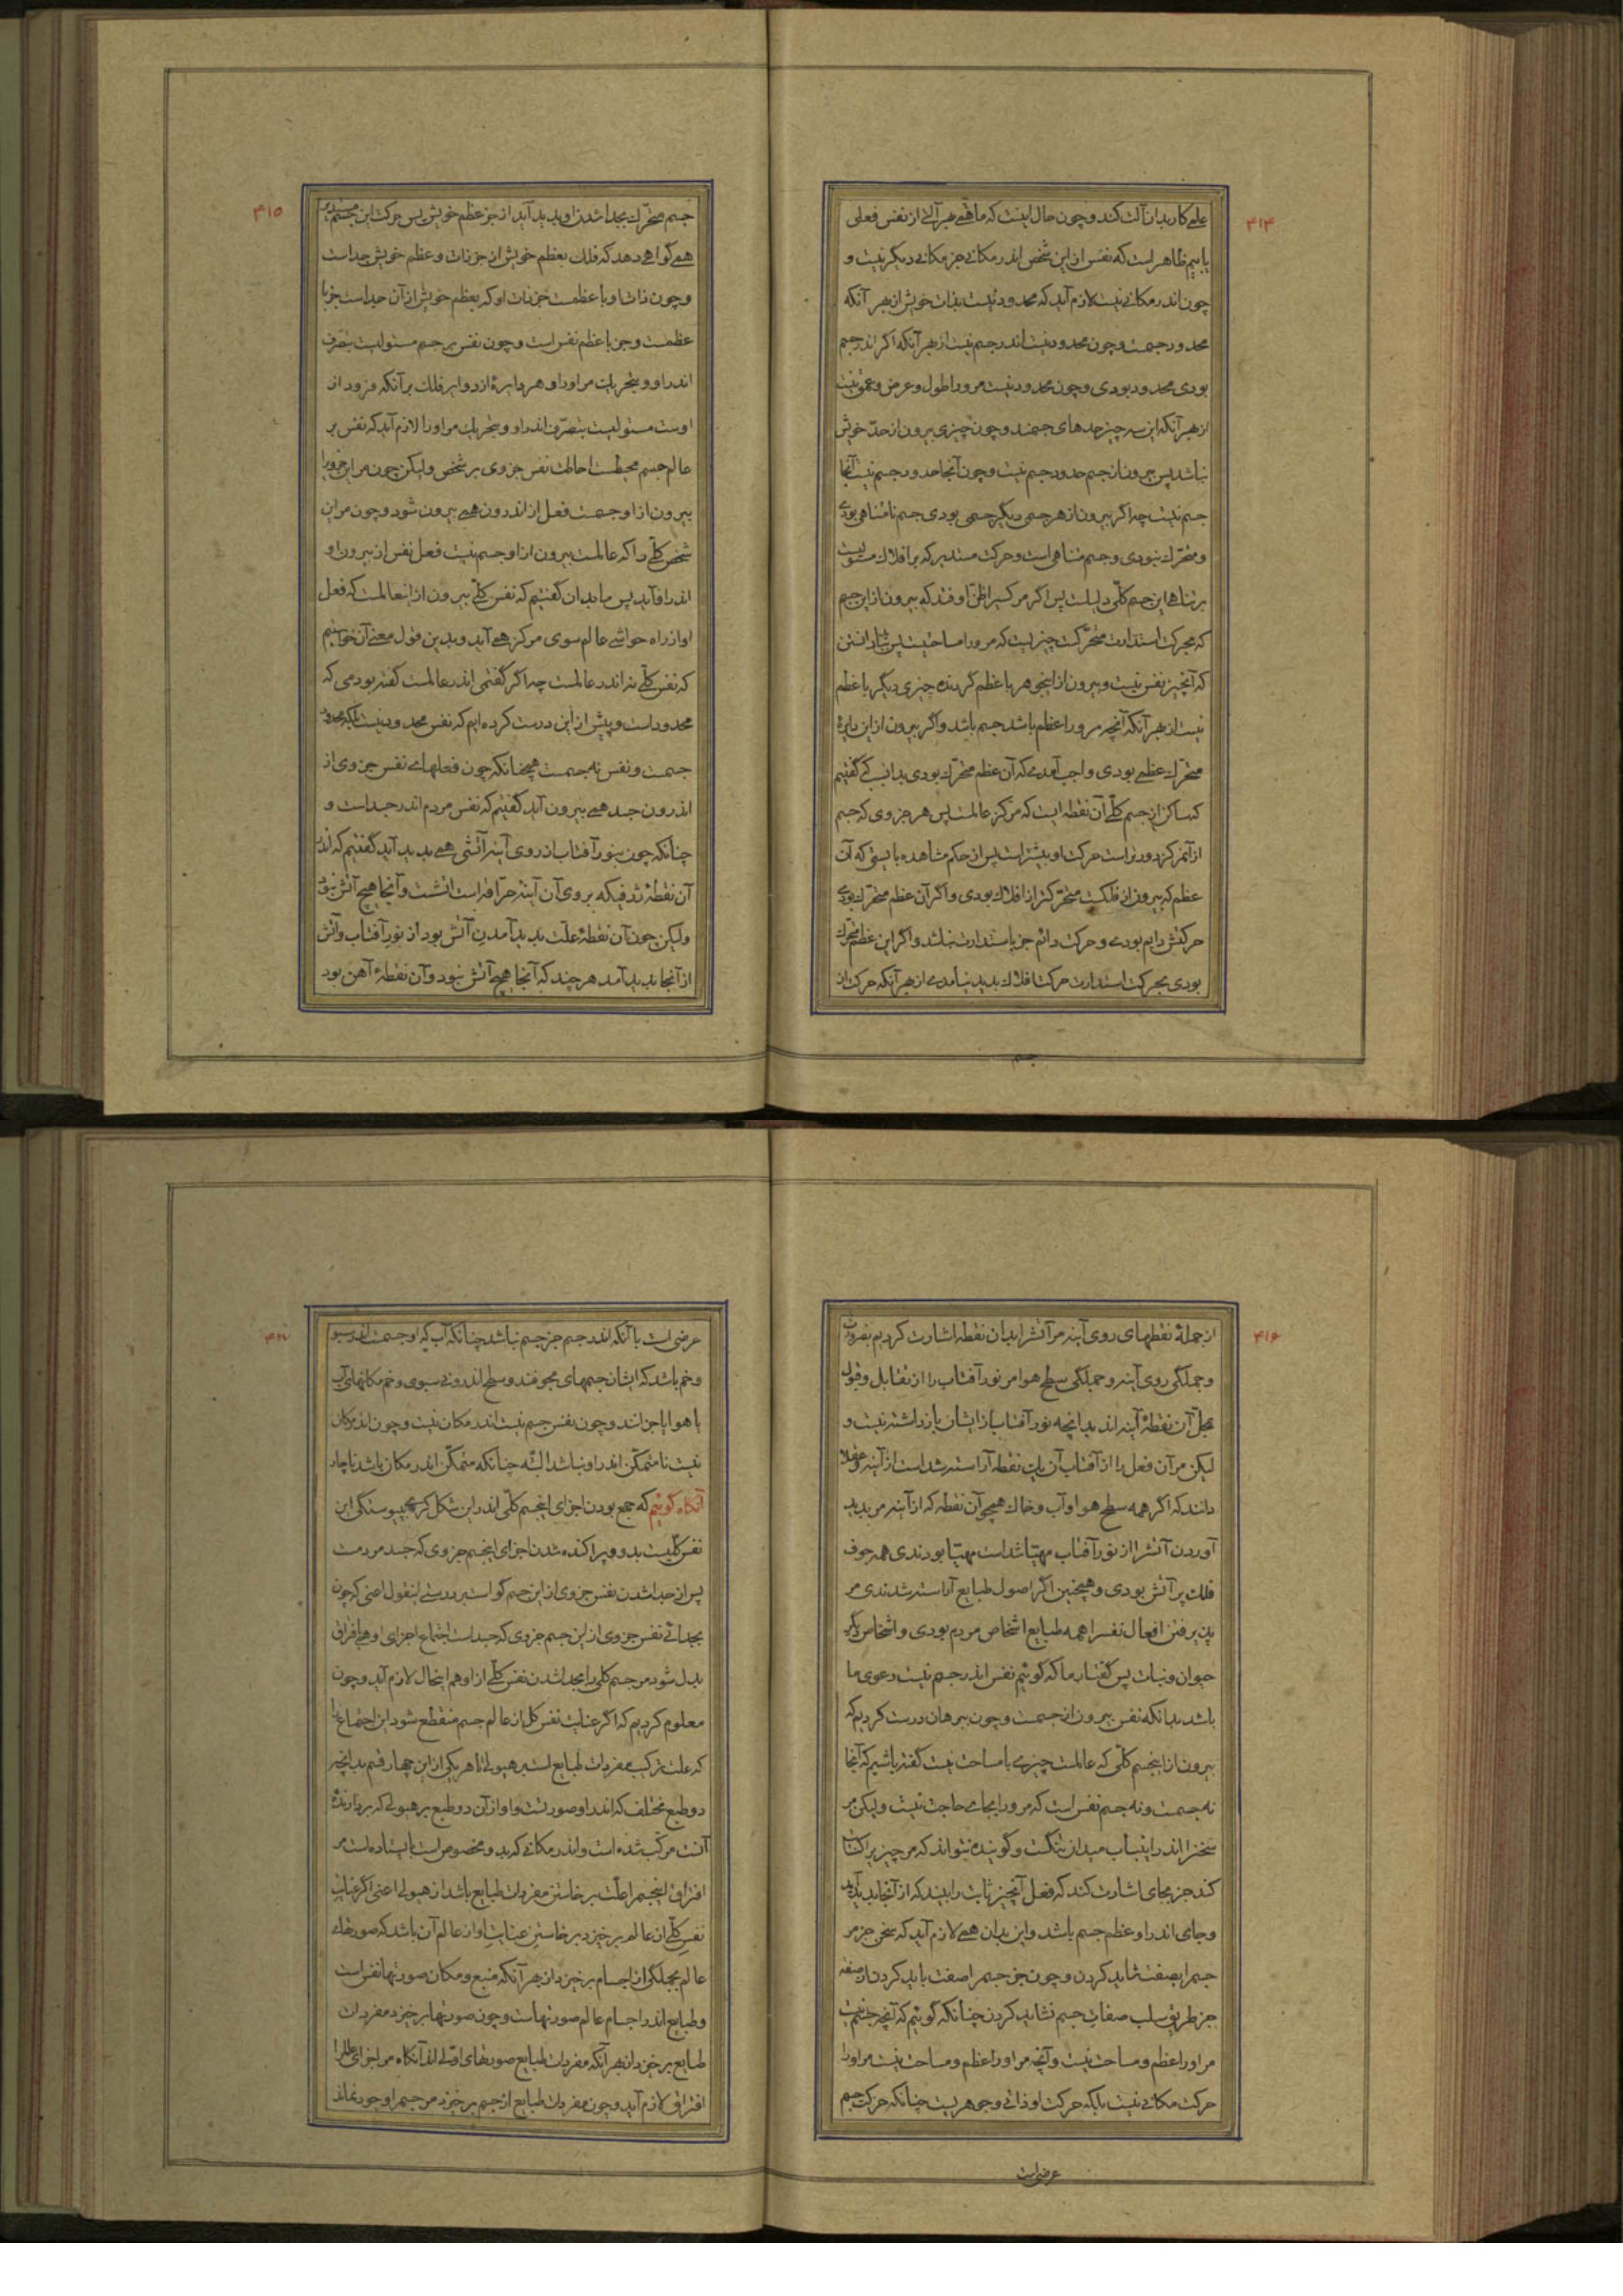 ۴۱۴
علمی کار بدان آلت کند و چون حال اینست که ما همی بهر آلتی از نفس فعلی
یابیم ظاهر است که نفس از این شخص اندر مکانی جز مکانی دیگر نیست و
چون اندر مکانی نیست لازم آید که محدود نیست بذات خویش از بهر آنکه
محدود جسمست و چون محدود نیست اندر جسم نیست از بهر آنکه اگر اندر جسم
بودی محدود بودی و چون محدود نیست مرورا طول و عرض و عمق نیست
از بهر آنکه این سه چیز حدهای جسمند و چون چیزی بیرون از حدّ خویش
نباشد پس بیرون از جسم حدود جسم نیست و چون آنجا حدود جسم نیست آنجا
جسم نیست چه اگر بیرون از هر جسمی دیگر جسمی بودی جسم نامتناهی بودی
و متحرّک نبودی و جسم متناهی است و حرکت مستدیر که بر افلاک مستولیست
بر تناهی این جسم کلّی دلیلست پس اگر مر کسیرا ظنّ اوفتد که بیرون از این جسم
که بحرکت استدارت متحرّکست چیزیست که مرورا مساحتیست پس بباید دانستن
که آنچیز نفس نیست و بیرون از اینجوهر با عظم گردنده چیزی دیگر با عظم
نیست از بهر آنکه آنچه مرورا عظم باشد جسم باشد و اگر بیرون از این دایرهٔ
متحرّک عظمی بودی واجب آمدی که آن عظم متحرّک بودی بدانسبب که گفتیم
که ساکن از جسم کلّی آن نقطه است که مرکز عالمست پس هر جزوی که جسم
از آنمرکز دورتر است حرکت او بیشتر است پس از حکم مشاهده بایستی که آن
عظم که بیرون از فلکست متحرّکتر از افلاک بودی و اگر آن عظم متحرّک بودی
حرکتش دایم بودی و حرکت دائم جز باستدارت نباشد و اگر این عظم متحرّک
بودی بحرکت استدارت حرکت افلاک پدید نیامدی از بهر آنکه حرکت از
جسم
۴۱۵
جسم متحرّک بجدا شدن او پدید آید از جز عظم خویش پس حرکت این جسم مستدیر
همی گواهی دهد که فلک بعظم خویش از جز ذات و عظم خویش جداست
و چون ذات او با عظمست جز ذات او که بعظم خویش از آن جداست جز با
عظمست و جز با عظم نفس است و چون نفس بر جسم مستولیست بتصرّف
اندر او و بتحریک مر اورا و هر دایرهٔ از دوایر فلک بر آنکه فرود از
اوست مستولیست بتصرّف اندر او و بتحریک مر اورا لازم آید که نفس بر
عالم جسم محیطست احاطت نفس جزوی بر شخص ولیکن چون مر این جزورا
بیرون از او جسمست فعل از اندرون همی بیرون شود و چون مر این
شخص کلّی را که عالمست بیرون از او جسم نیست فعل نفس از بیرون او
اندر او آید پس ما بدان گفتیم که نفس کلّی بیرون از اینعالمست که فعل
او از راه حواشی عالم سوی مرکز همی آید و بدین قول معنی آن خواستیم
که نفس کلّی نه اندر عالمست چه اگر گفتمی اندر عالمست گفته بودمی که
محدود است و پیش از این درست کرده ایم که نفس محدود نیست بلکه محدود
جسمست و نفس نه جسمست همچنانکه چون فعلهای نفس جزوی از
اندرون جسد همی بیرون آید گفتیم که نفس مردم اندر جسد است و
چنانکه چون بنور آفتاب از روی آینه آتشی همی پدید آید گفتیم که اندر
آن نقطهٔ که بروی آن آینهٔ حرّاقه است آتشست و آنجا هیچ آتش نبود
ولیکن چون آن نقطهٔ علّت پدید آمدن آتش بود از نور آفتاب و آتش
از آنجا پدید آمد هر چند که آنجا هیچ آتش نبود و آن نقطهٔ آهن بود
۴۱۶
از جملهٔ نقطهای روی آینه مر آتشرا بدان نقطه اشارت کردیم بضرورت
و جملگی روی آینه و جملگی سطح هوا مر نور آفتاب را از تقابل و قبول
بمحلّ آن نقطهٔ آینه اند بدانچه نور آفتاب از ایشان باز داشته نیست و
لیکن مر آن فعل را از آفتاب آن یک نقطه آراسته شداست از آینه و عقلا
دانند که اگر همه سطح هوا و آب و خاک همچو آن نقطه که از آینه مر پدید
آوردن آتشرا از نور آفتاب مهیّا شداست مهیّا بودندی همه جوف
فلک پر آتش بودی و همچنین اگر اصول طبایع آراسته شدندی مر
پذیرفتن افعال نفسرا همه طبایع اشخاص مردم بودی و اشخاص دیگر
حیوان و نبات پس گفتار ما که گوئیم نفس اندر جسم نیست دعوی ما
باشد بدانکه نفس بیرون از جسمست و چون ببرهان درست کردیم که
بیرون از اینجسم کلّی که عالمست چیزی با مساحت نیست گفته باشیم که آنجا
نه جسمست و نه جسم نفس است که مرورا بجای حاجت نیست ولیکن مر
سخنرا اندر اینباب میدان تنگست و گوینده نتواند که مر چیزیرا اثبات
کند جز بجای اشارت کند که فعل آنچیز ثابت را بیند که از آنجا پدید آید
و جای اندر او عظم جسم باشد و این بدان همی لازم آید که سخن جز مر
جسمرا بصفت نشاید کردن و چون جز جسمرا صفت باید کردن از صفت
جز طریق سلب صفات جسم نشاید کردن چنانکه گوئیم که آنچه جسم نیست
مر اورا عظم و مساحت نیست و آنچه مر اورا عظم و مساحت نیست مر اورا
حرکت مکانی نیست بلکه حرکت او ذاتی و جوهریست چنانکه حرکت جسم
عرضی است
۴۱۷
عرضی است با آنکه اندر جسم جز جسم نباشد چنانکه آب که او جسمست اندر سبو
و خم باشد که ایشان جسمهای مجوفند و سطح اندرونی سبوی و خم مکانهای آب
یا هوا یا جز اند و چون نفس جسم نیست اندر مکان نیست و چون اندر مکان
نیست نامتمکّن اندر او نباشد البتّه چنانکه متمکّن اندر مکان باشد ناچار
آنگاه گوئیم که جمع بودن اجزای اینجسم کلّی اندر این شکل کری بپیوستگی این
نفس کلّیست بدو و پراکنده شدن اجزای اینجسم جزوی که جسد مردمست
پس از جدا شدن نفس جزوی از این جسم گواست بر درستی اینقول اعنی که چون
بجدائی نفس جزوی از این جسم جزوی که جسد است اجتماع اجزای او همی بافتراق
بدل شود مر جسم کلّی را بجدا شدن نفس کلّی از او هم اینحال لازم آید و چون
معلوم کردیم که اگر عنایت نفس کل از عالم جسم منقطع شود این اجتماع را
که علت ترکیب مفردات طبایع است بر هیولی تا هر یکی از این چهار قسم بدانچه
دو طبع مختلف که اندر او صورتست و او از آن دو طبع بر هیولی که بردارندهٔ
آنست مرکّب شده است و اندر مکانی که بدو مخصوص است بایستاده است مر
افتراق اینجسمرا علّت برخاستن مفردات طبایع باشد از هیولی اعنی اگر عنایت
نفس کلّی از عالم برخیزد برخاستن عنایت او از عالم آن باشد که صورتهای
عالم بجملگی از اجسام برخیزد از بهر آنکه منبع و مکان صورتها نفس است
و طبایع اندر اجسام عالم صورتهاست و چون صورتها برخیزد مفردات
طبایع برخیزد از بهر آنکه مفردات طبایع صورتهای اوّلی اند آنگاه مر اجزای عالمرا
افتراق لازم آید و چون مفردات طبایع از جسم برخیزد مر جسمرا وجود نماند